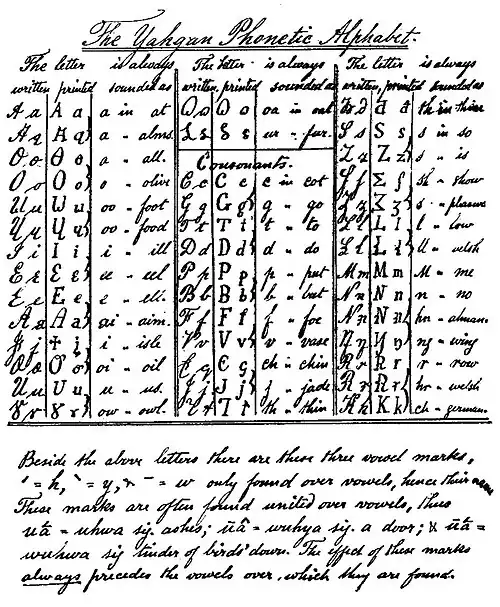 The Yahgan Phonetic Alphabet.
The letter is always The letter is always The letter is always
written printed sounded as written, printed sounded as written, printed sounded as
A a A a a in at O o O o oa in oat th in thine
a „ alms. ur „ fur. S s S s s in so
a „ all. Consonants. Z z Z z s „ is
O o O o o „ olive C c C c c in cot sh „ show
oo „ foot G g G g g „ go s „ pleasure
oo „ food T t T t t „ to L l L l l „ low
I i I i i „ ill D d D d d „ do ll „ welsh
ee „ eel P p P p p „ put M m M m M „ me
E e E e e „ ell. B b B b b „ but N n N n n „ no
A a A a ai „ aim. F f F f f „ foe hn „ alman.
i „ isle V v V v v „ vase ng „ wing
oi „ oil ch in chin R r R r r „ row
U u U u u „ us. J j J j j „ jade hr „ welsh
ow „ owl. th „ thin K k ch „ german.
Beside the above letters there are these three vowel marks,
ʹ = h, ` = y, & ¯ = w only found over vowels, hence their name
These marks are often found united over vowels, thus
= uhwa sig. ashes; = wuhya sig. a door; &
wuhwa sig tinder of birds' down. The effect of these marks
always precedes the vowels over which they are found.